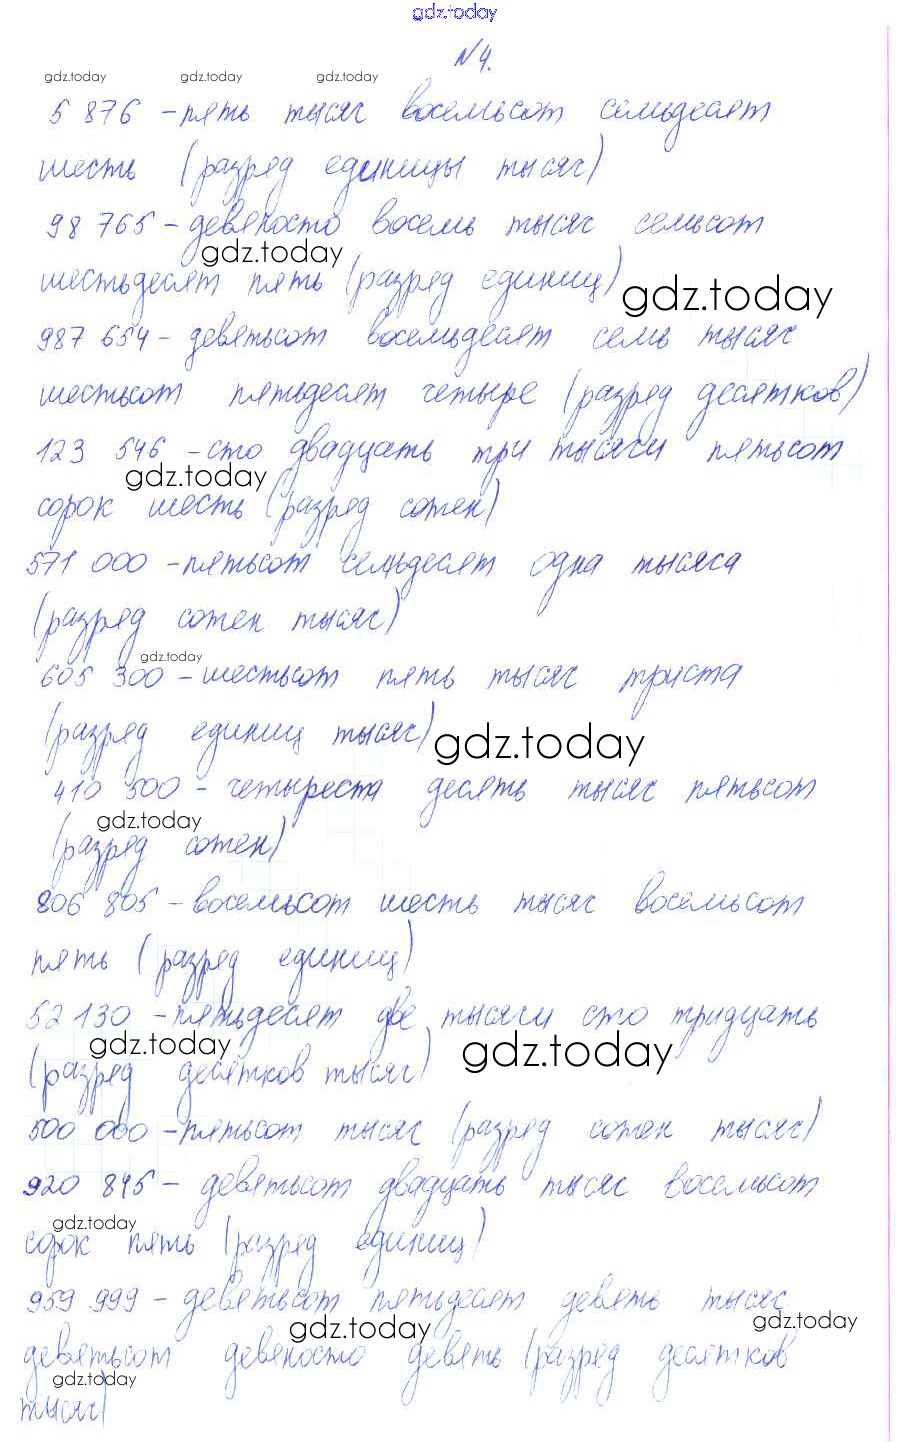 gdz.today
№4.
gdz.today gdz.today gdz.today
5 876 - пять тысяч восемьсот семьдесят
шесть (разряд единицы тысяч)
98 765 - девяносто восемь тысяч семьсот
gdz.today
шестьдесят пять (разряд единиц)
gdz.today
987 654 - девятьсот восемьдесят семь тысяч
шестьсот пятьдесят четыре (разряд десятков)
123 546 - сто двадцать три тысячи пятьсот
gdz.today
сорок шесть (разряд сотен)
571 000 - пятьсот семьдесят одна тысяча
(разряд сотен тысяч)
gdz.today
605 300 - шестьсот пять тысяч триста
(разряд единиц тысяч)
gdz.today
410 500 - четыреста десять тысяч пятьсот
gdz.today
(разряд сотен)
806 805 - восемьсот шесть тысяч восемьсот
пять (разряд единиц)
52 130 - пятьдесят две тысячи сто тридцать
gdz.today gdz.today
(разряд десятков тысяч)
500 000 - пятьсот тысяч (разряд сотен тысяч)
920 845 - девятьсот двадцать тысяч восемьсот
gdz.today
сорок пять (разряд единиц)
959 999 - девятьсот пятьдесят девять тысяч
gdz.today gdz.today
девятьсот девяносто девять (разряд десятков
gdz.today
тысяч)